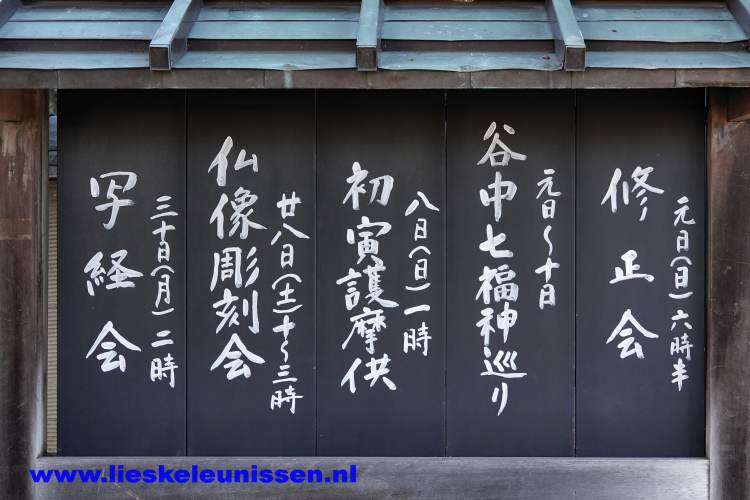 修正会
元日(日)六時半
谷中七福神巡り
元日〜十日
初寅護摩供
八日(日)一時
仏像彫刻会
廿八日(土)十〜三時
写経会
三十日(月)二時
www.lieskeleunissen.nl